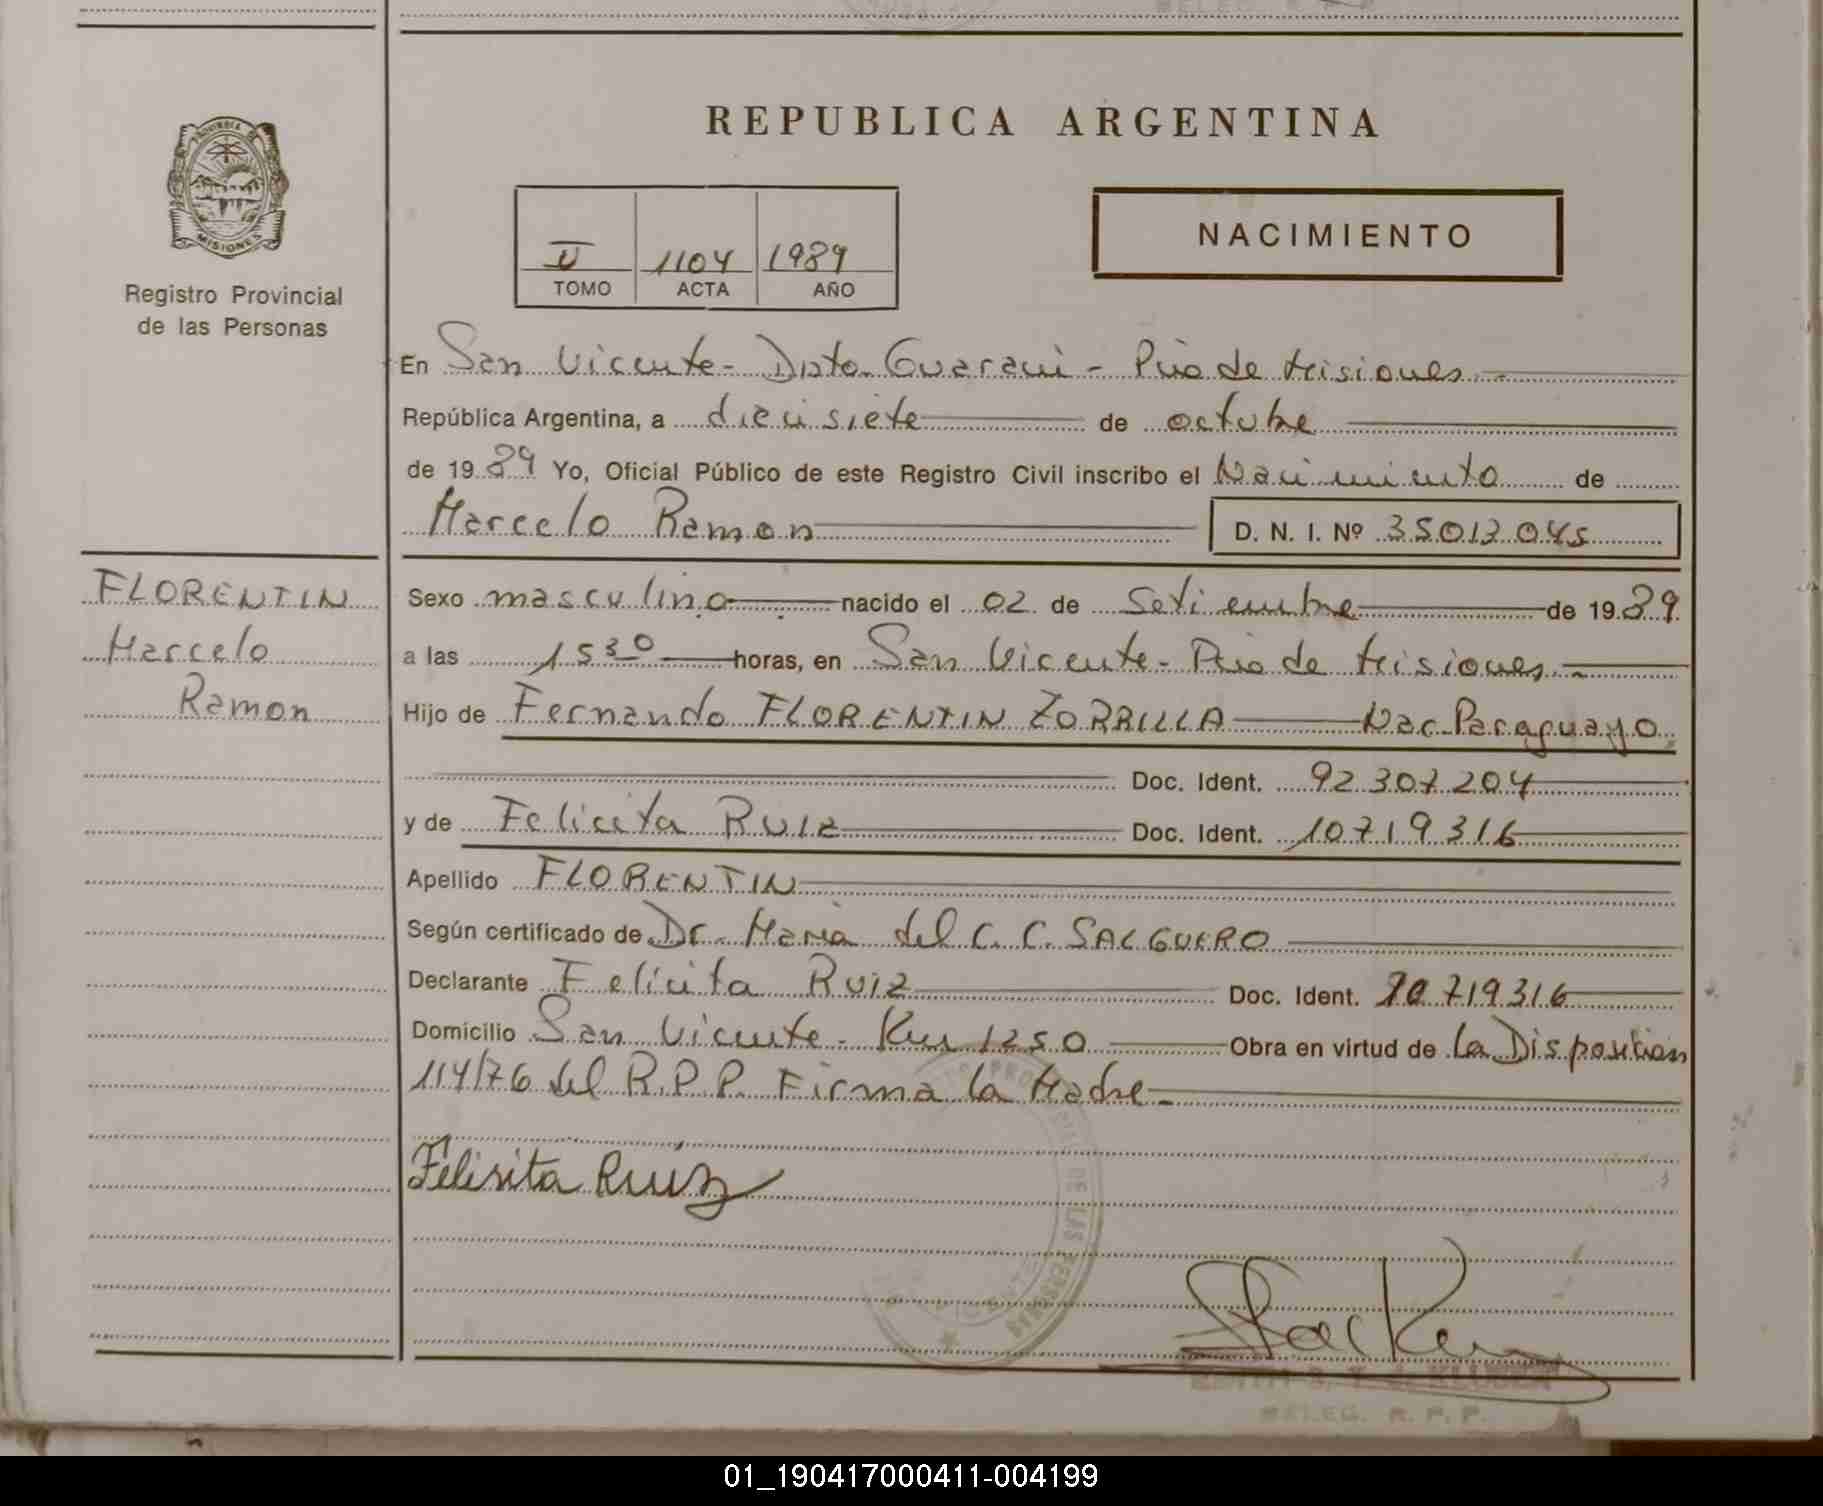 REPUBLICA ARGENTINA
PROVINCIA DE
MISIONES
Registro Provincial
de las Personas
II 1104 1989
TOMO ACTA AÑO
NACIMIENTO
En San Vicente - Dpto. Guarani - Pcia de Misiones.-
República Argentina, a diecisiete de octubre
de 1989 Yo, Oficial Público de este Registro Civil inscribo el Nacimiento de
Marcelo Ramon D. N. I. Nº 35013045
FLORENTIN
Marcelo
Ramon
Sexo masculino nacido el 02 de Setiembre de 1989
a las 1530 horas, en San Vicente - Pcia de Misiones.-
Hijo de Fernando FLORENTIN ZORRILLA Nac. Paraguayo.
Doc. Ident. 92.307.204
y de Felicita Ruiz Doc. Ident. 10.719.316
Apellido FLORENTIN
Según certificado de Dr. Maria del C. C. SALGUERO
Declarante Felicita Ruiz Doc. Ident. 10.719.316
Domicilio San Vicente - Km 1250 Obra en virtud de la Disposicion
114/76 del R.P.P. Firma la Madre.-
Felisita Ruiz
DE LAS PERSONAS
DELEG. R. P. P.
01_190417000411-004199